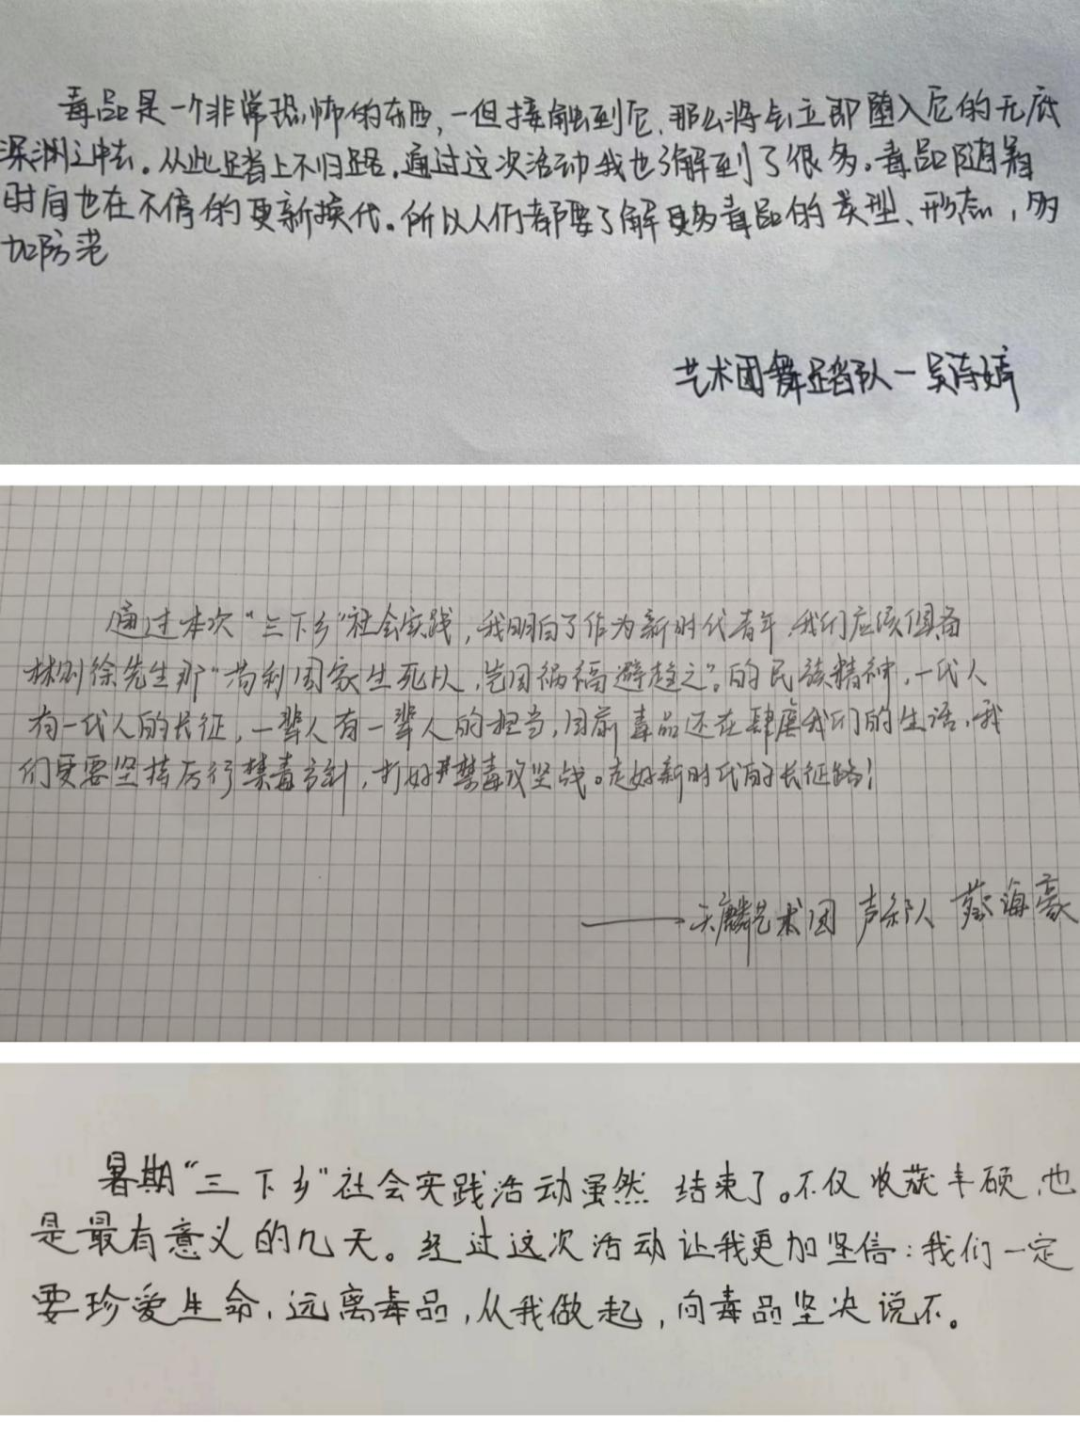 毒品是一个非常恐怖的东西,一但接触到它,那么将会立即堕入它的无底
深渊之中去。从此踏上不归路,通过这次活动我也了解到了很多。毒品随着
时间也在不停的更新换代。所以人们都要了解更多毒品的类型、形态,多
加防范
艺术团舞蹈队一吴诗婷
通过本次“三下乡”社会实践,我明白了作为新时代青年,我们应该俱备
林则徐先生那“苟利国家生死以,岂因祸福避趋之”。的民族精神,一代人
有一代人的长征,一辈人有一辈人的担当,目前毒品还在肆虐我们的生活,我
们更要坚持厉行禁毒方针,打好禁毒攻坚战。走好新时代的长征路!
——天麟艺术团 声乐队 蔡海豪
暑期“三下乡”社会实践活动虽然结束了。不仅收获丰硕,也
是最有意义的几天。经过这次活动让我更加坚信:我们一定
要珍爱生命,远离毒品,从我做起,向毒品坚决说不。